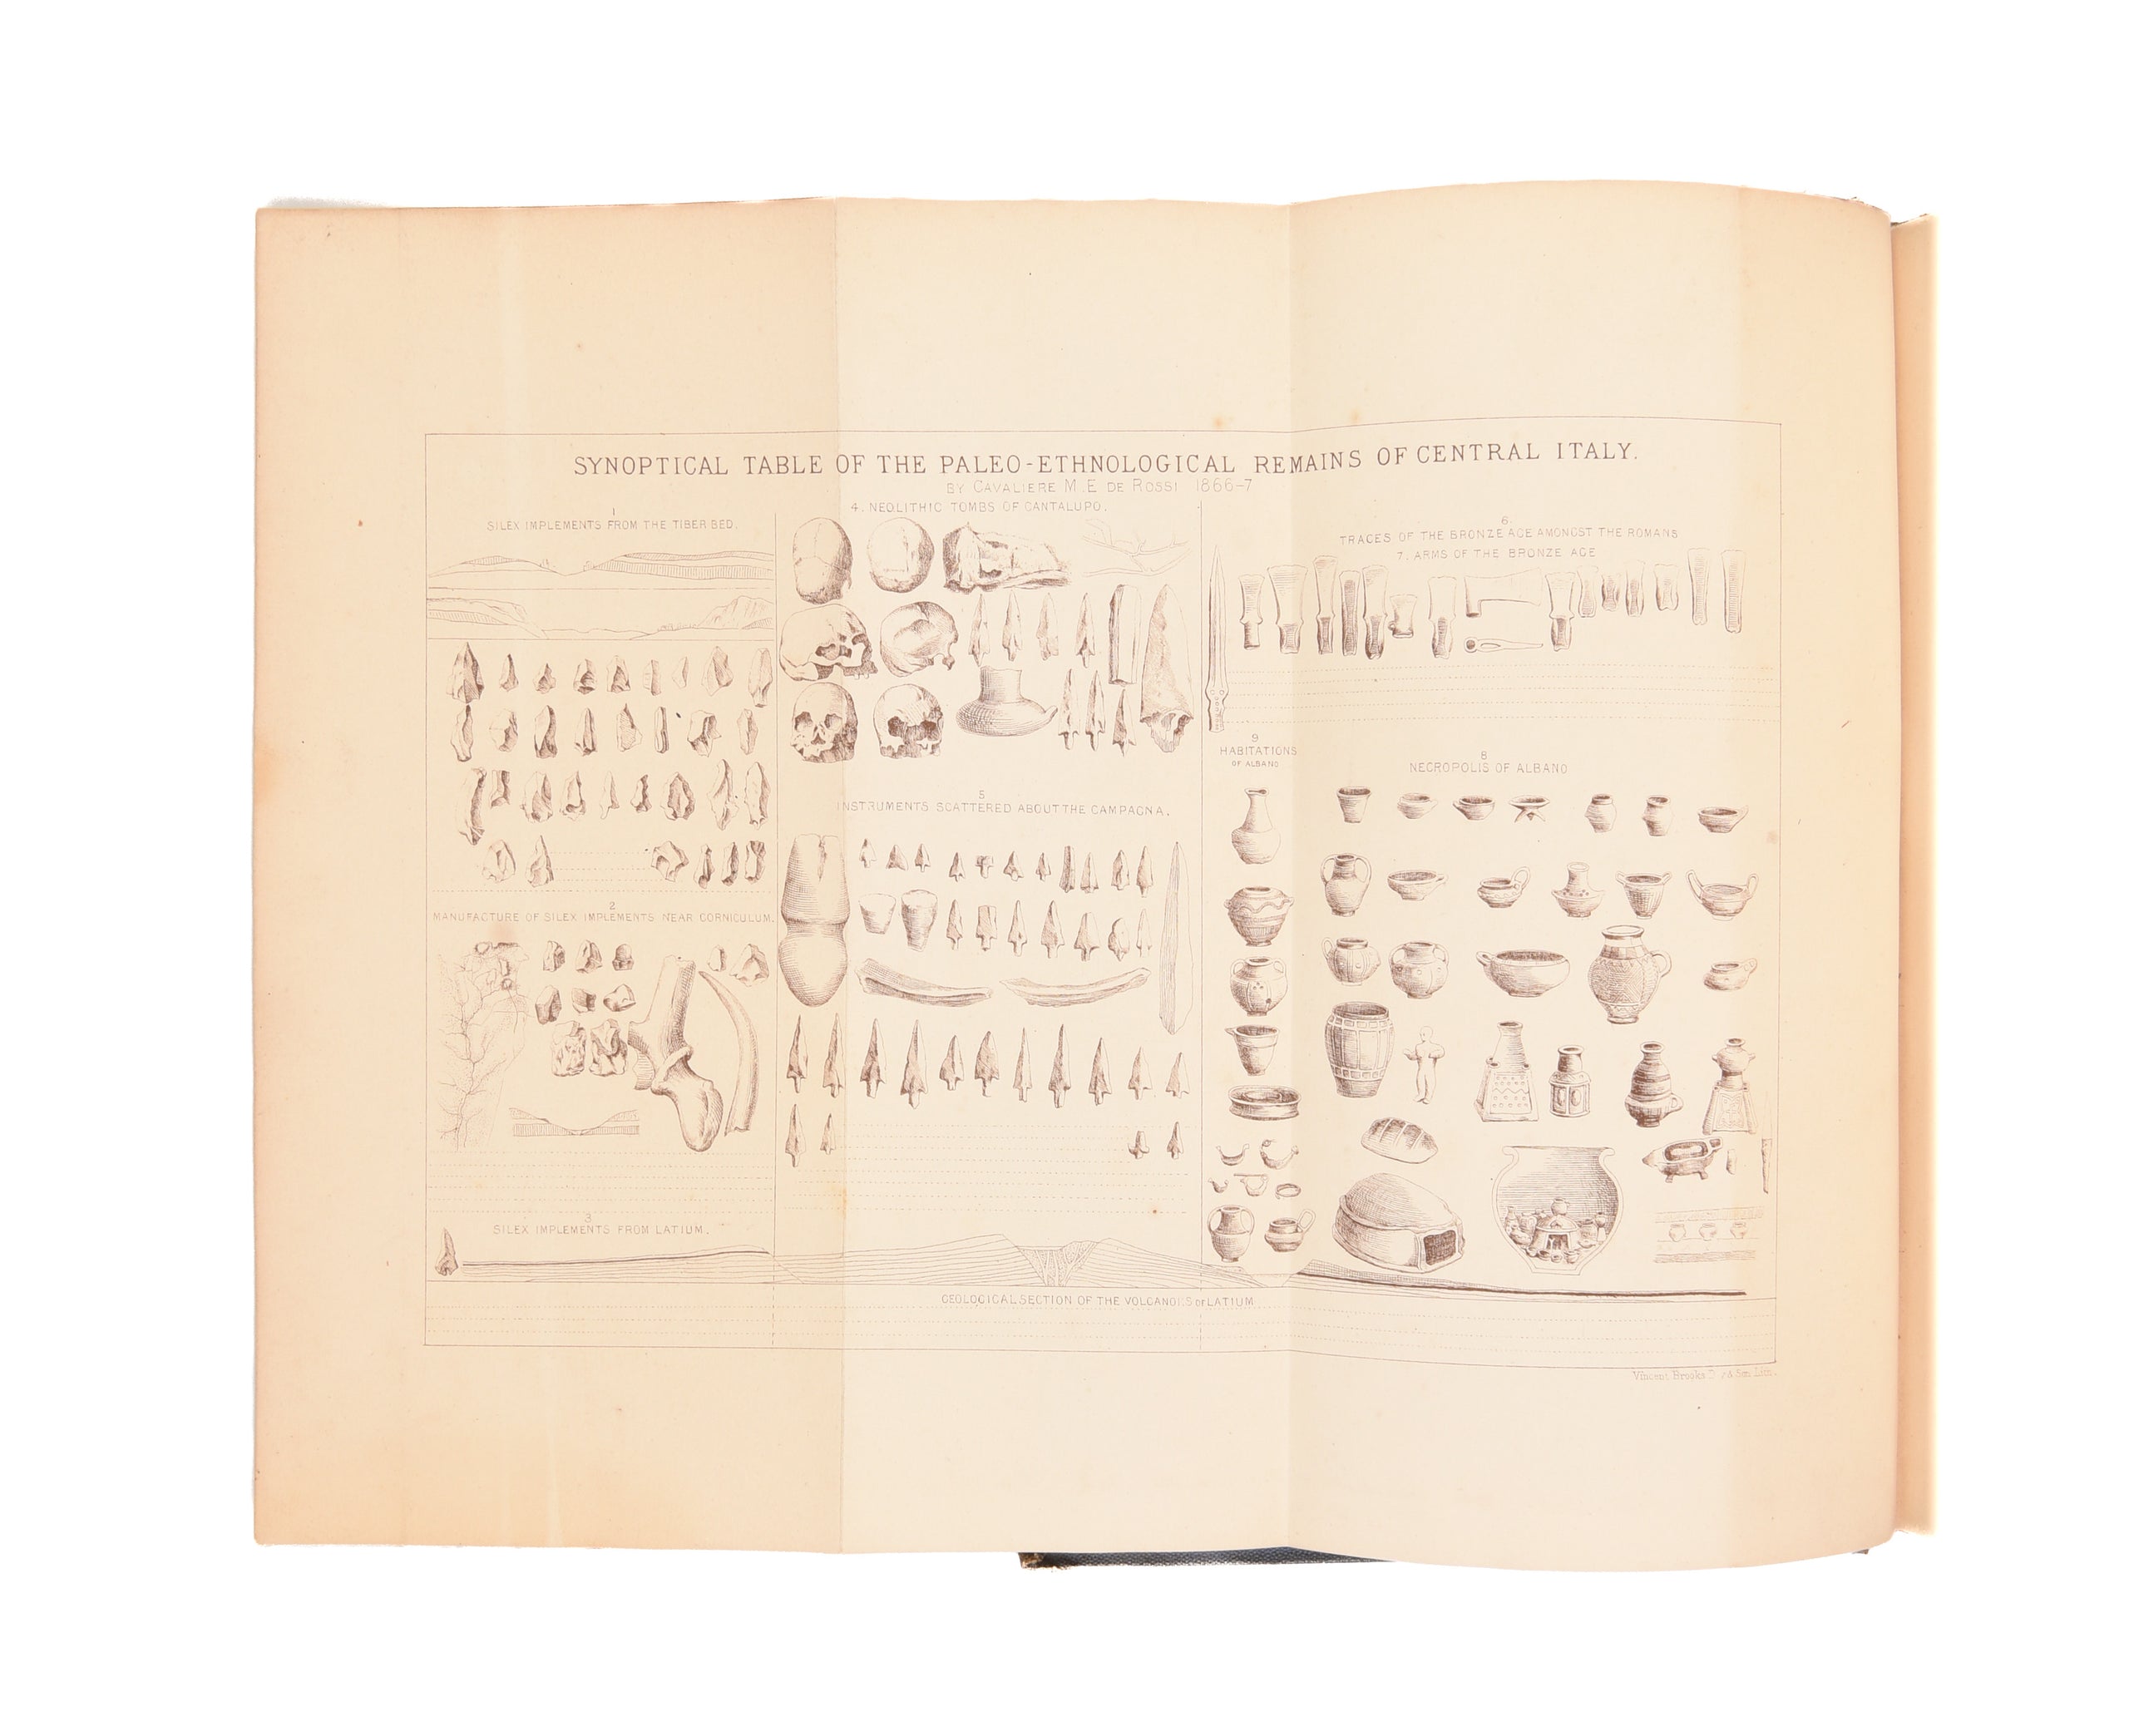 SYNOPTICAL TABLE OF THE PALEO-ETHNOLOGICAL REMAINS OF CENTRAL ITALY.
BY CAVALIERE M. E DE ROSSI 1866-7
1
SILEX IMPLEMENTS FROM THE TIBER BED.
2
MANUFACTURE OF SILEX IMPLEMENTS NEAR CORNICULUM.
3
SILEX IMPLEMENTS FROM LATIUM.
4. NEOLITHIC TOMBS OF CANTALUPO.
5
INSTRUMENTS SCATTERED ABOUT THE CAMPAGNA.
6
TRACES OF THE BRONZE AGE AMONGST THE ROMANS
7. ARMS OF THE BRONZE AGE
9
HABITATIONS
OF ALBANO
8
NECROPOLIS OF ALBANO
GEOLOGICAL SECTION OF THE VOLCANOES OF LATIUM
Vincent Brooks Son Lith.